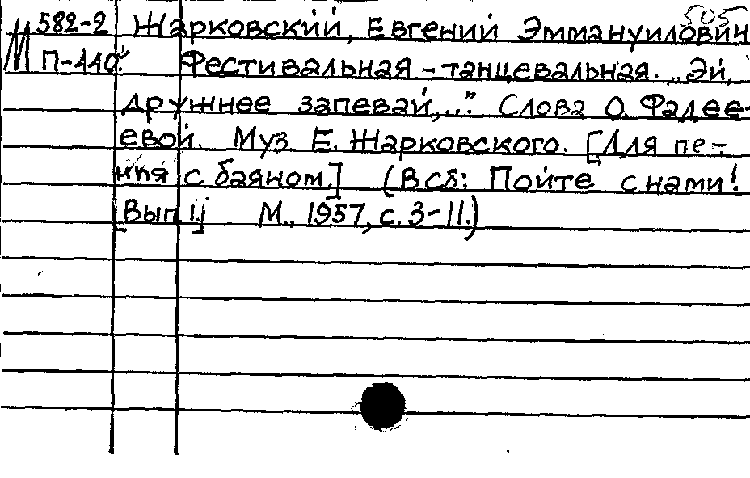 505
М 582-2 Жарковский, Евгений Эммануилович
П-440 Фестивальная-танцевальная. „Эй,
дружнее запевай,..." Слова О. Фадее-
евой. Муз Е. Жарковского. [Для пе-
ния с баяном.] (В сб: Пойте с нами!
[Вып 1.] М., 1957, с. 3-11.)